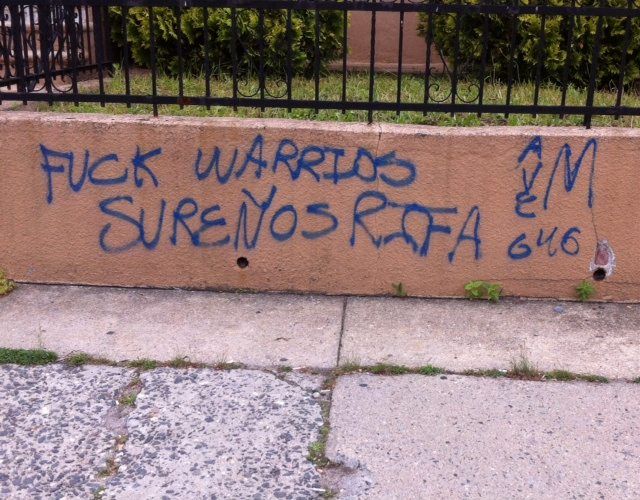 FUCK WARRIOS
SUREÑOS RIFA
AVE M
646